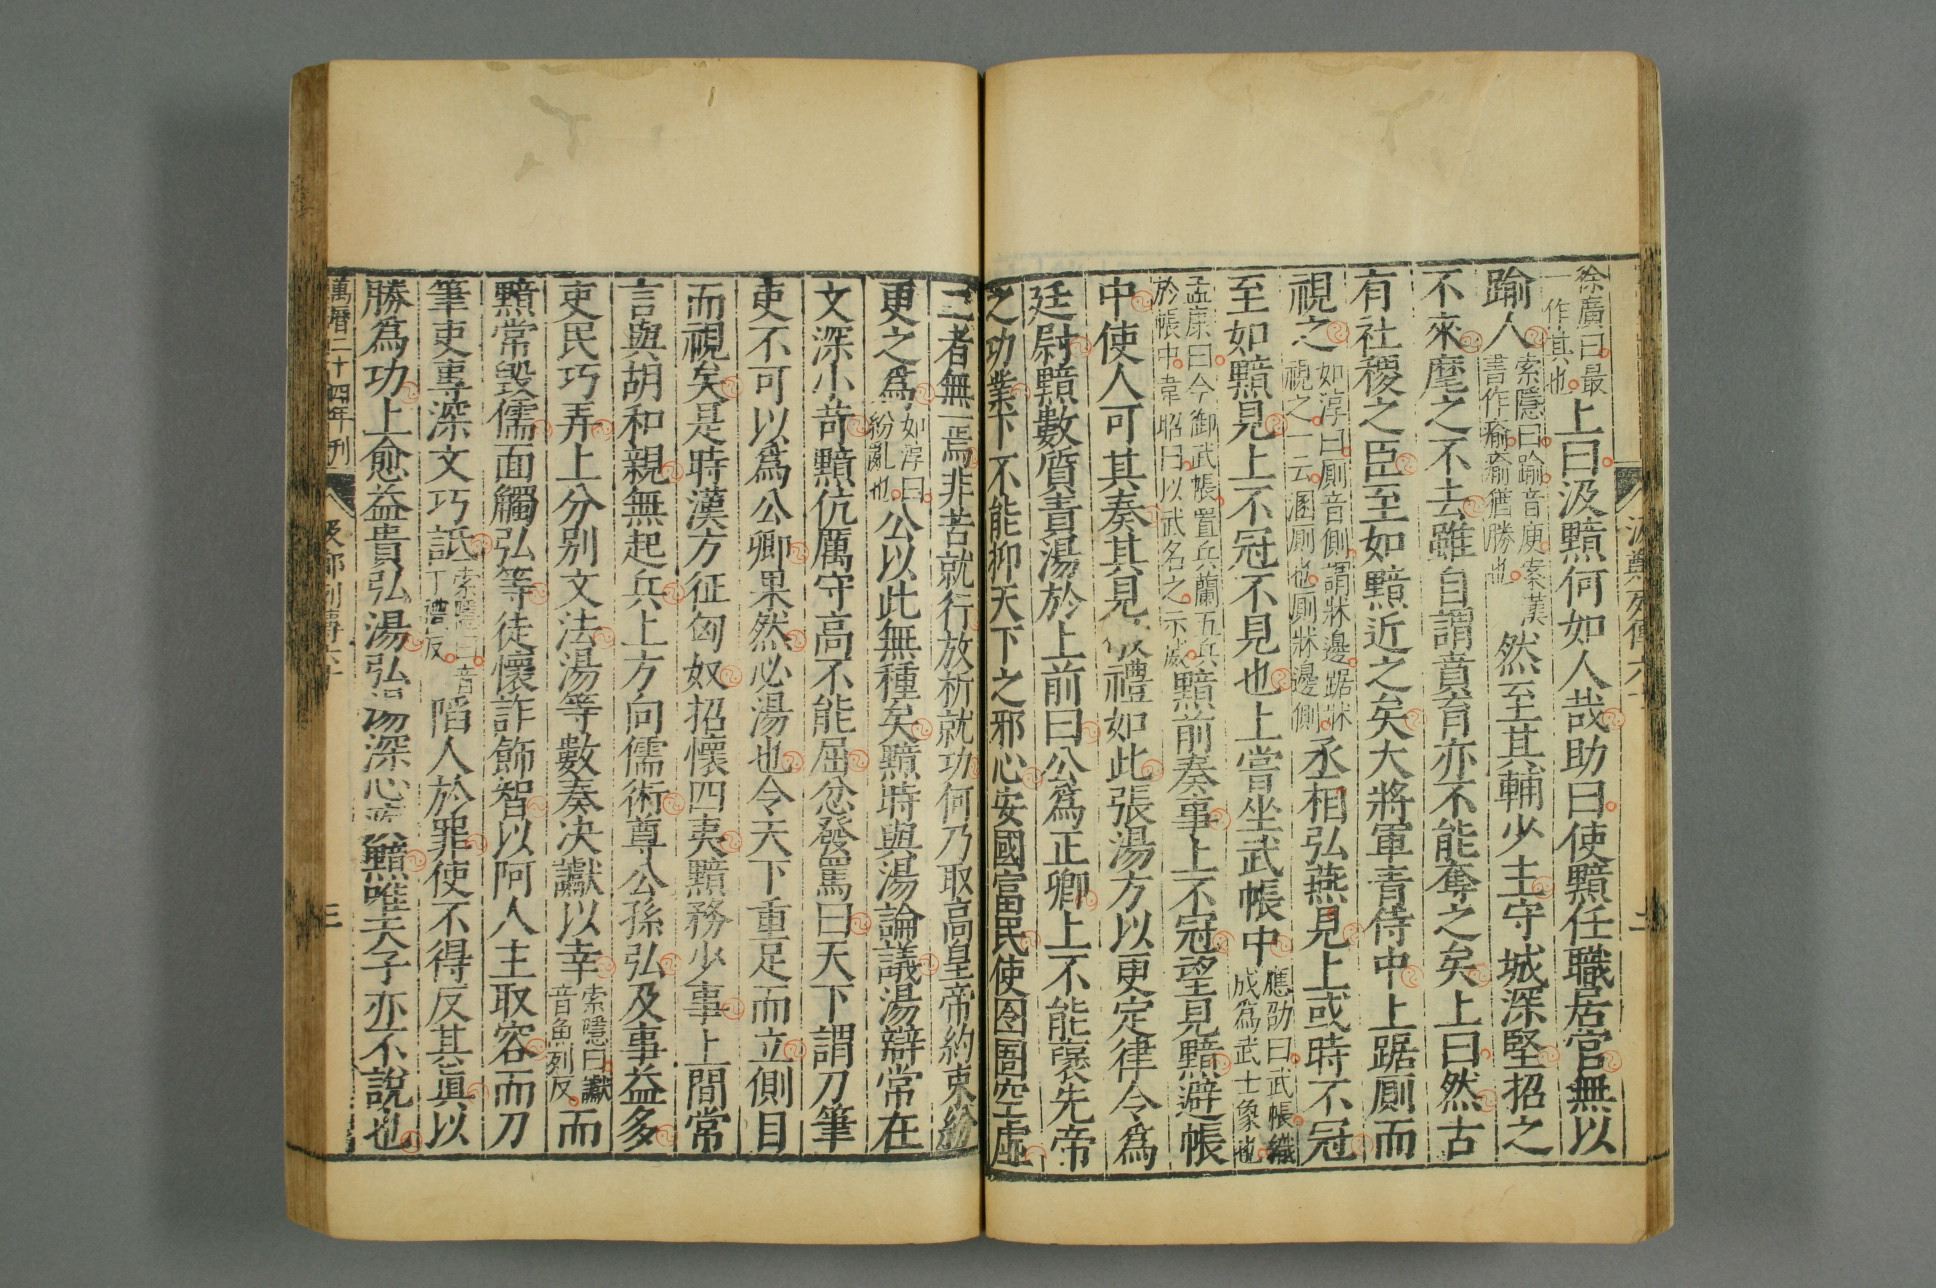 汲鄭列傳六十 二
徐廣曰最
一作其也
上曰汲黯何如人哉助曰使黯任職居官無以
踰人
索隱曰踰音庾案漢
書作瘉瘉猶勝也
然至其輔少主守城深堅招之
不來麾之不去雖自謂賁育亦不能奪之矣上曰然古
有社稷之臣至如黯近之矣大將軍青侍中上踞廁而
視之
如淳曰廁音側謂牀邊踞牀
視之一云溷廁也廁牀邊側
丞相弘燕見上或時不冠
至如黯見上不冠不見也上嘗坐武帳中
應劭曰武帳織
成爲武士象也
孟康曰今御武帳置兵蘭五兵
於帳中韋昭曰以武名之示威
黯前奏事上不冠望見黯避帳
中使人可其奏其見敬禮如此張湯方以更定律令爲
廷尉黯數質責湯於上前曰公爲正卿上不能襃先帝
之功業下不能抑天下之邪心安國富民使囹圄空虛
二者無一焉非苦就行放析就功何乃取高皇帝約束紛
更之爲
如淳曰
紛亂也
公以此無種矣黯時與湯論議湯辯常在
文深小苛黯伉厲守高不能屈忿發罵曰天下謂刀筆
吏不可以爲公卿果然必湯也令天下重足而立側目
而視矣是時漢方征匈奴招懷四夷黯務少事上間常
言與胡和親無起兵上方向儒術尊公孫弘及事益多
吏民巧弄上分别文法湯等數奏决讞以幸
索隱曰讞
音魚列反
而
黯常毀儒面觸弘等徒懷詐飾智以阿人主取容而刀
筆吏專深文巧詆
索隱曰音
丁禮反
陷人於罪使不得反其眞以
勝爲功上愈益貴弘湯弘湯深心疾黯唯天子亦不說也
萬曆二十四年刊 汲鄭列傳六十 三